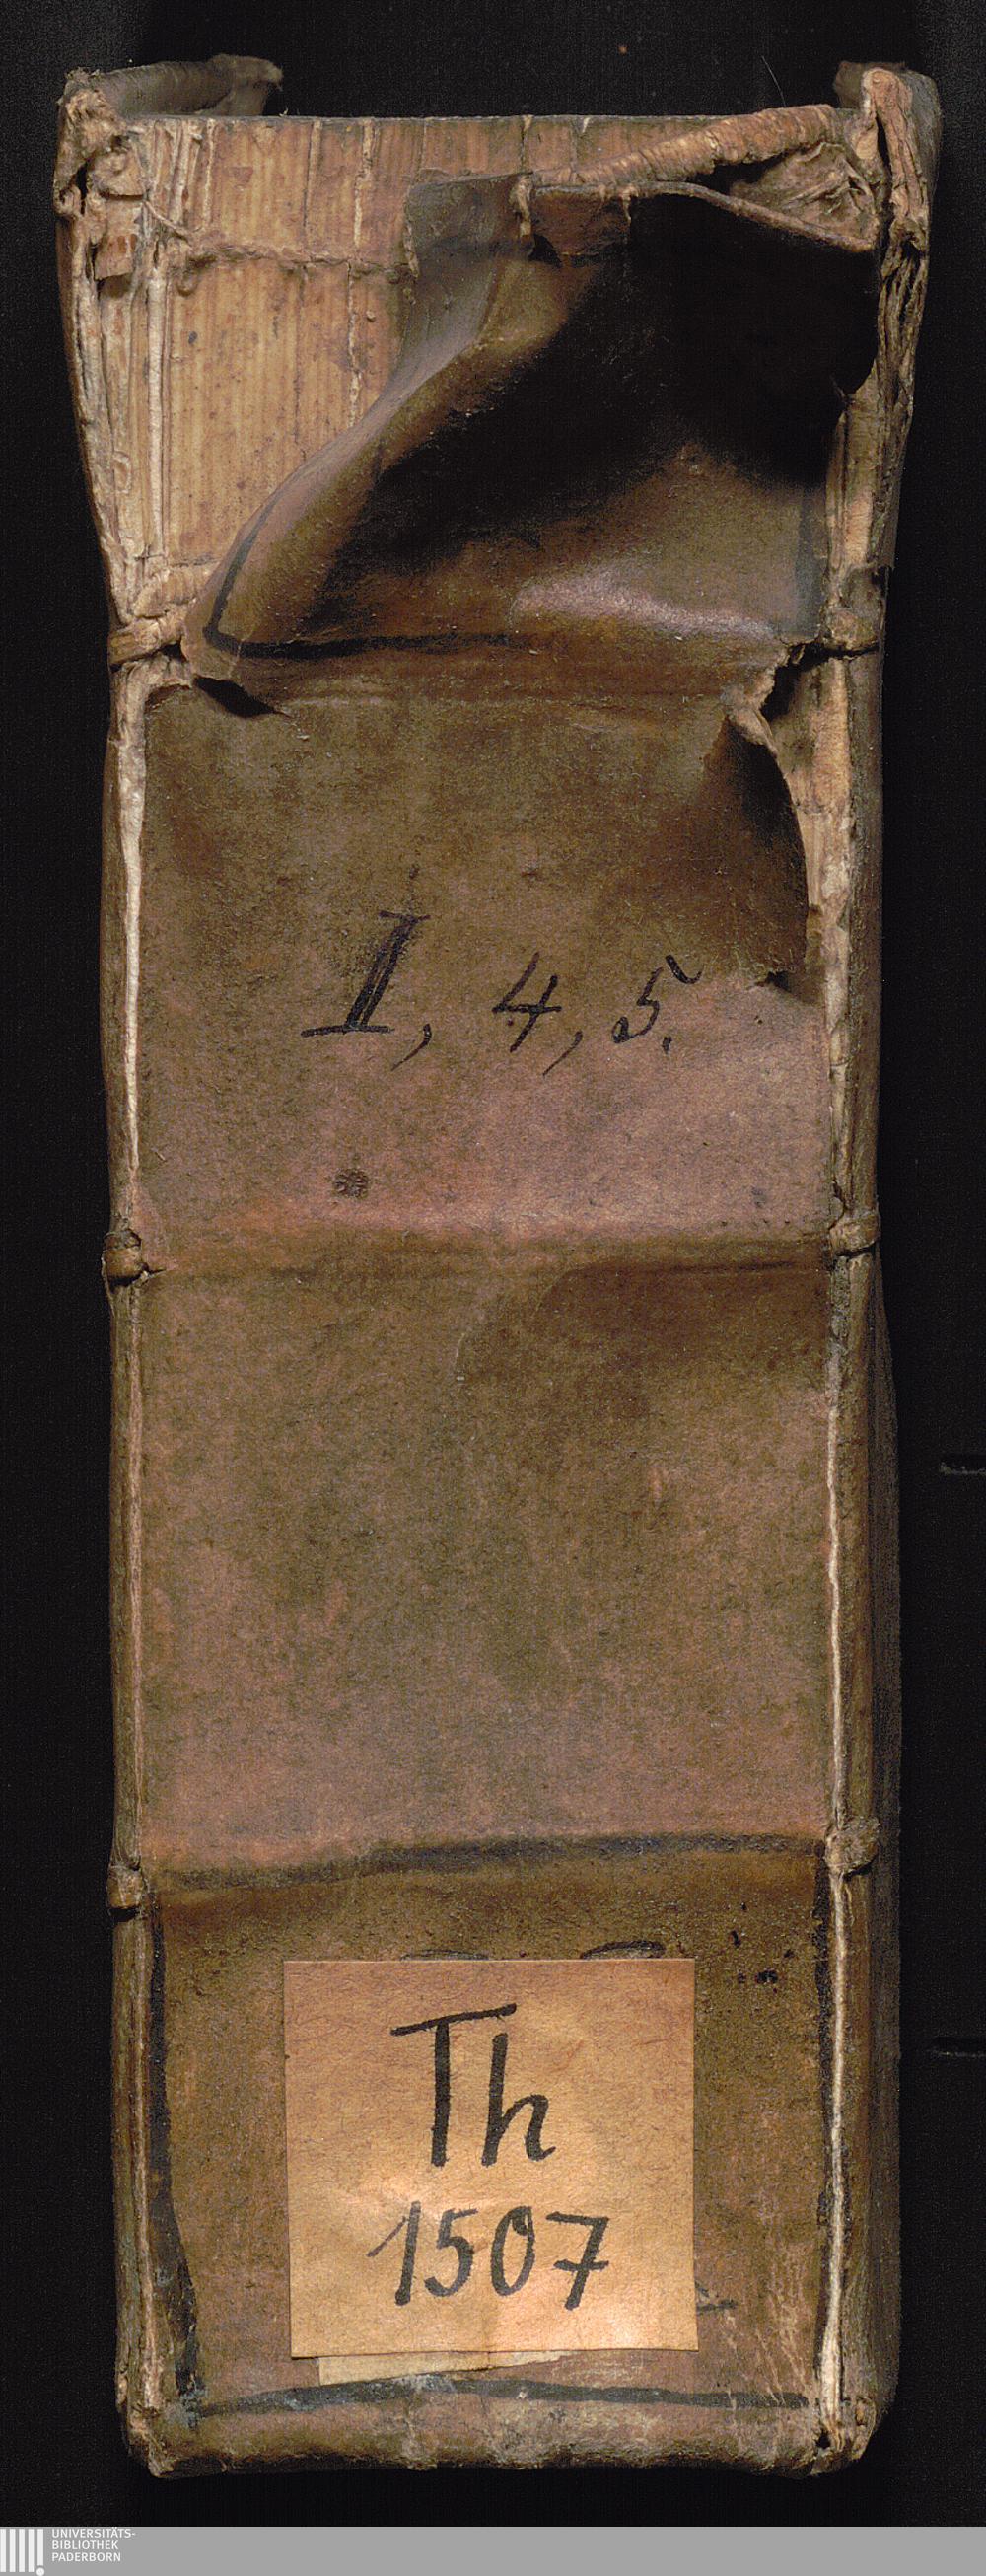 I, 4, 5.
Th
1507
UNIVERSITÄTS-
BIBLIOTHEK
PADERBORN